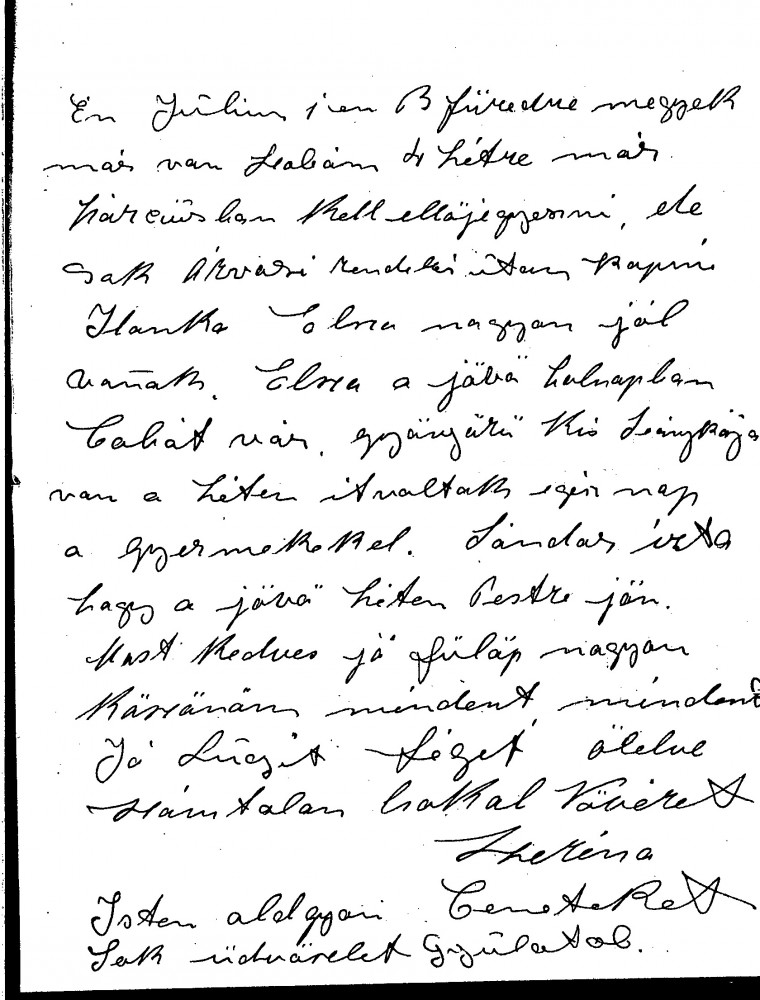 Én Július 1 en B füredre megyek
már van szobám 4 hétre már
Márciusban kell ellőjegyezni, de
sak Árvasi rendelés útan kapni
Ilanka Elsa nagyon jól
vanak. Elsa a jövő holnapban
babát vár, gyönyörü kis leánykája
van a héten itvoltak egész nap
a gyermekekel. Sándor írta
hogy a jövő héten Pestre jön.
Most kedves jó Fülöp nagyon
köszönöm mindent, mindent
Jó Lúczit téged ölelve
számtalan csokal Növéred
Szeréna
Isten aldgyon beneteket
Sok üdvözlet Gyulatol.